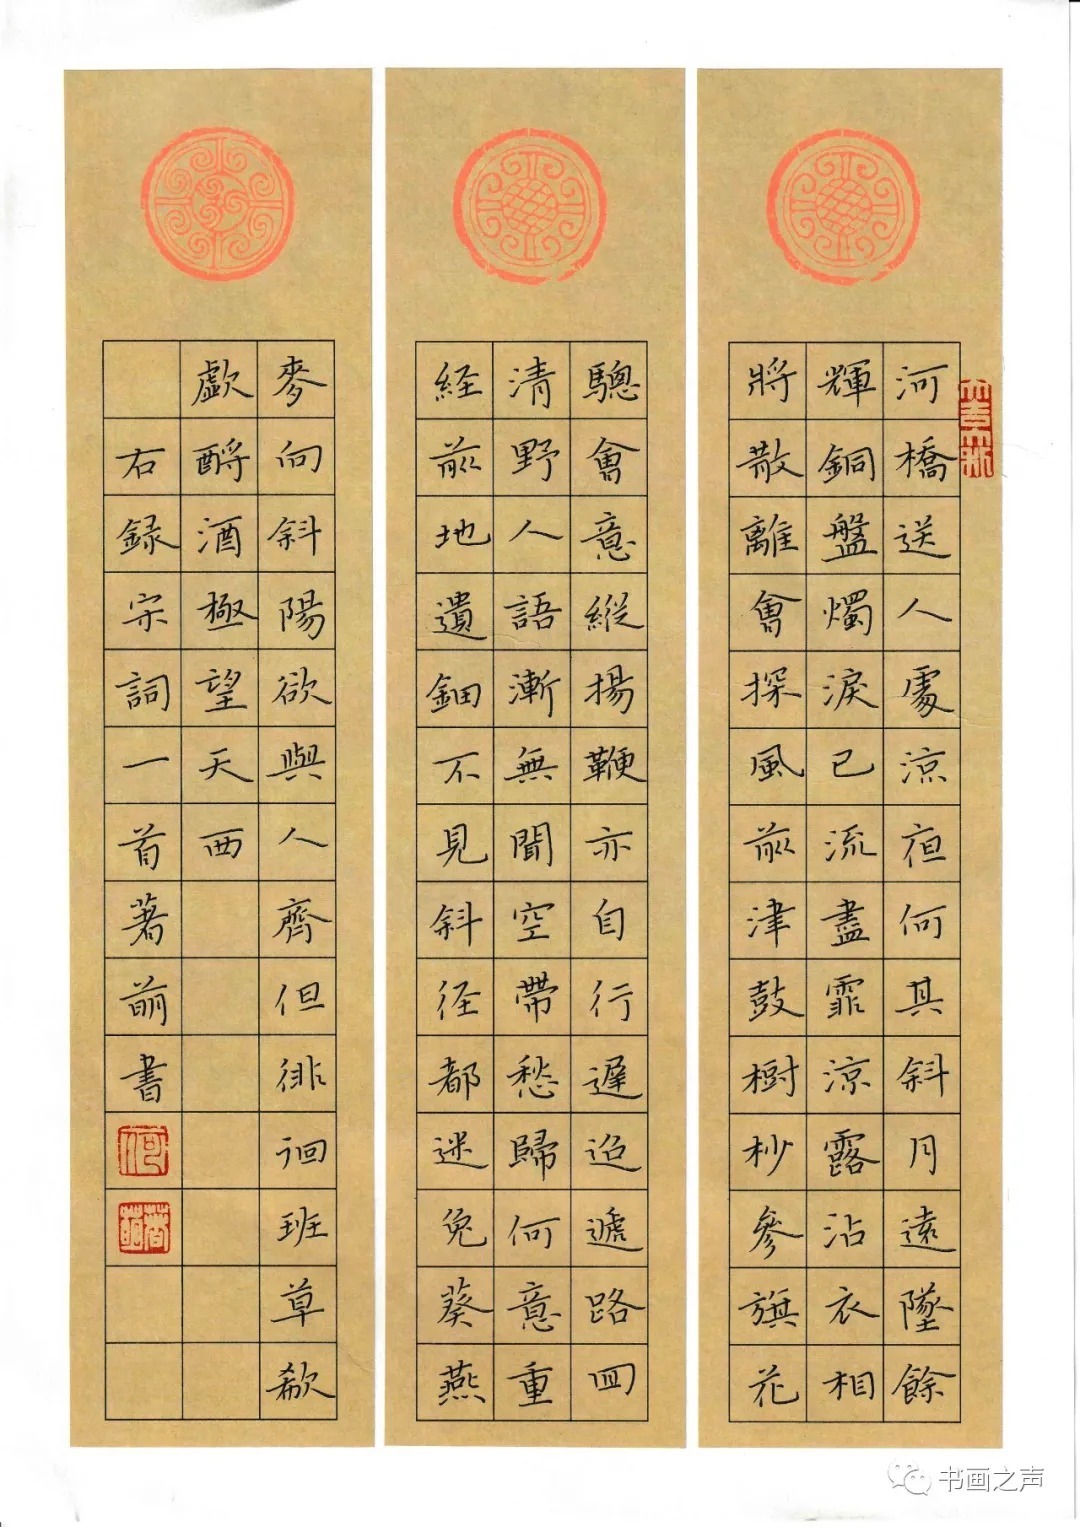 河橋送人處涼夜何其斜月遠墜餘
輝銅盤燭淚已流盡霏涼露沾衣相
將散離會探風前津鼓樹杪參旗花
驄會意縱揚鞭亦自行遲迢遞路回
清野人語漸無聞空帶愁歸何意重
経前地遺鈿不見斜径都迷兔葵燕
麥向斜陽欲與人齊但徘徊班草欷
歔酹酒極望天西
右録宋詞一首著萌書
书画之声